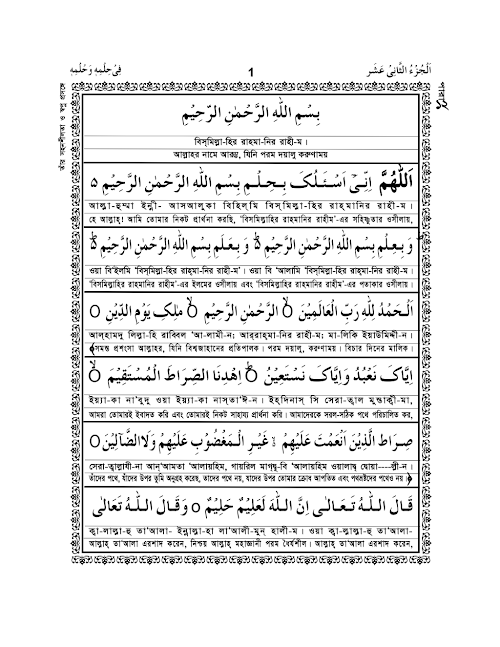 فِيْ حِلْمِهٖ وَحُلْمِهٖ
1
اَلْجُزْءُ الثَّانِيْ عَشَر
তাঁর সহনশীলতা ও স্বপ্ন প্রসঙ্গে
بِسْمِ اللهِ الرَّحْمٰنِ الرَّحِيْمِ
বিস্‌মিল্লা-হির রাহমা-নির রাহী-ম।
আল্লাহর নামে আরম্ভ, যিনি পরম দয়ালু করুণাময়
اَللّٰهُمَّ اِنِّىْ اَسْئَلُكَ بِحِلْمِ بِسْمِ اللهِ الرَّحْمٰنِ الرَّحِيْمِ ٥
আল্লা-হুম্মা ইন্নী- আসআলুকা বিহিল্‌মি বিস্‌মিল্লা-হির রাহ্‌মানির রাহী-ম।
হে আল্লাহ্‌! আমি তোমার নিকট প্রার্থনা করছি, ‘বিসমিল্লাহির রাহমানির রাহীম’-এর সহিষ্ণুতার ওসীলায়,
وَ بِعِلْمِ بِسْمِ اللهِ الرَّحْمٰنِ الرَّحِيْمِ ۵ وَ بِعَلَمِ بِسْمِ اللهِ الرَّحْمٰنِ الرَّحِيْمِ ۵
ওয়া বি'ইলমি ‘বিস্‌মিল্লা-হির রাহ্‌মা-নির রাহী-ম’। ওয়া বি 'আলামি ‘বিস্‌মিল্লা-হির রাহ্‌মা-নির রাহী-ম।
‘বিসমিল্লাহির রাহমানির রাহীম’-এর ইলমের ওসীলায় এবং ‘বিসমিল্লাহির রাহমানির রাহীম’-এর পতাকার ওসীলায়।
اَلْحَمْدُ لِلّٰهِ رَبِّ الْعَالَمِيْنَ ۝ الرَّحْمٰنِ الرَّحِيْمِ ۝ مٰلِكِ يَوْمِ الدِّيْنِ ۝
আল্‌হামদু লিল্লা-হি রাব্বিল 'আ-লামী-ন; আর্‌রাহ্‌মা-নির রাহী-ম; মা-লিকি ইয়াউমিদ্দী-ন।
সমস্ত প্রশংসা আল্লাহর, যিনি বিশ্বজাহানের প্রতিপালক। পরম দয়ালু, করুণাময়। বিচার দিনের মালিক।
اِيَّاكَ نَعْبُدُ وَاِيَّاكَ نَسْتَعِيْنُ ۝ اِهْدِنَا الصِّرَاطَ الْمُسْتَقِيْمَ ۝
ইয়্যা-কা না'বুদু ওয়া ইয়্যা-কা নাস্‌তা'ঈ-ন। ইহ্‌দিনাস্‌ সি সেরা-ত্বাল মুস্তাক্বী-মা,
আমরা তোমারই ইবাদত করি এবং তোমারই নিকট সাহায্য প্রার্থনা করি। আমাদেরকে সরল-সঠিক পথে পরিচালিত কর,
صِرَاطَ الَّذِيْنَ اَنْعَمْتَ عَلَيْهِمْ غَيْرِ الْمَغْضُوْبِ عَلَيْهِمْ وَلَا الضَّآلِّيْنَ ۝
সেরা-ত্বাল্লাযী-না আন্‌'আমতা 'আলায়হিম, গায়রিল মাগদ্বু-বি 'আলায়হিম ওয়ালাদ্ব দ্বোয়া----ল্লী-ন।
তাঁদের পথে, যাঁদের উপর তুমি অনুগ্রহ করেছ, তাদের পথে নয়, যাদের উপর তোমার ক্রোধ আপতিত এবং পথভ্রষ্টদের পথেও নয়।
قَالَ اللّٰهُ تَعَالٰى اِنَّ اللّٰهَ لَعَلِيْمٌ حَلِيْمٌ ۝ وَقَالَ اللّٰهُ تَعَالٰى
ক্বা-লাল্লা-হু তা'আলা- ইন্নাল্লা-হা লা'আলী-মুন্‌ হালী-ম। ওয়া ক্বা-লাল্লা-হু তা'আলা-
আল্লাহ্‌ তা'আলা এরশাদ করেন, নিশ্চয় আল্লাহ্‌ মহাজ্ঞানী পরম ধৈর্যশীল। আল্লাহ্‌ তা'আলা এরশাদ করেন,